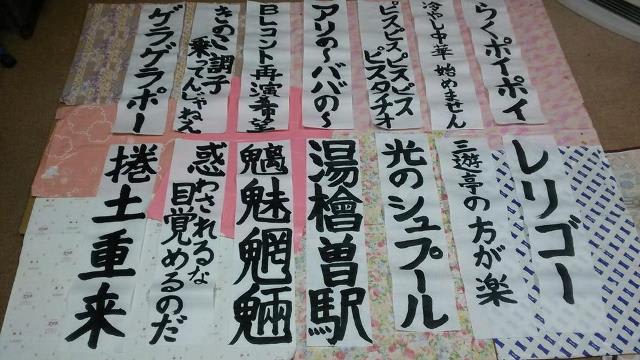 らくポイポイ
冷やし中華 始めません
ピスピスピスピス
ピスタチオ
アリの〜ババの〜
BLコント再演希望
きのこ調子
乗ってんじゃねえ
ゲラゲラポー
レリゴー
三遊亭の方が楽
光のシュプール
湯檜曽駅
魑魅魍魎
惑わされるな
目覚めるのだ
捲土重来